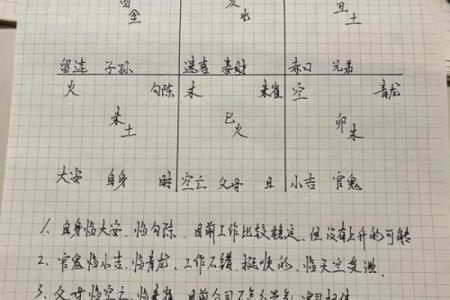 留 金 亥 水 丑 土
留连 子孙 速喜 妻财 赤口 兄弟
火 勾陈 木 朱雀 空 青龙
未 土 巳 火 卯 木
大安 自身 时 空亡 父母 日 小吉 官鬼
1、自身临大安、临勾陈、目前工作比较稳定、但没有上升的可能
2、官鬼临小吉、临青龙、工作不错、挺顺的、临天空
3、父母临空亡、临朱雀、目前公司不怎么